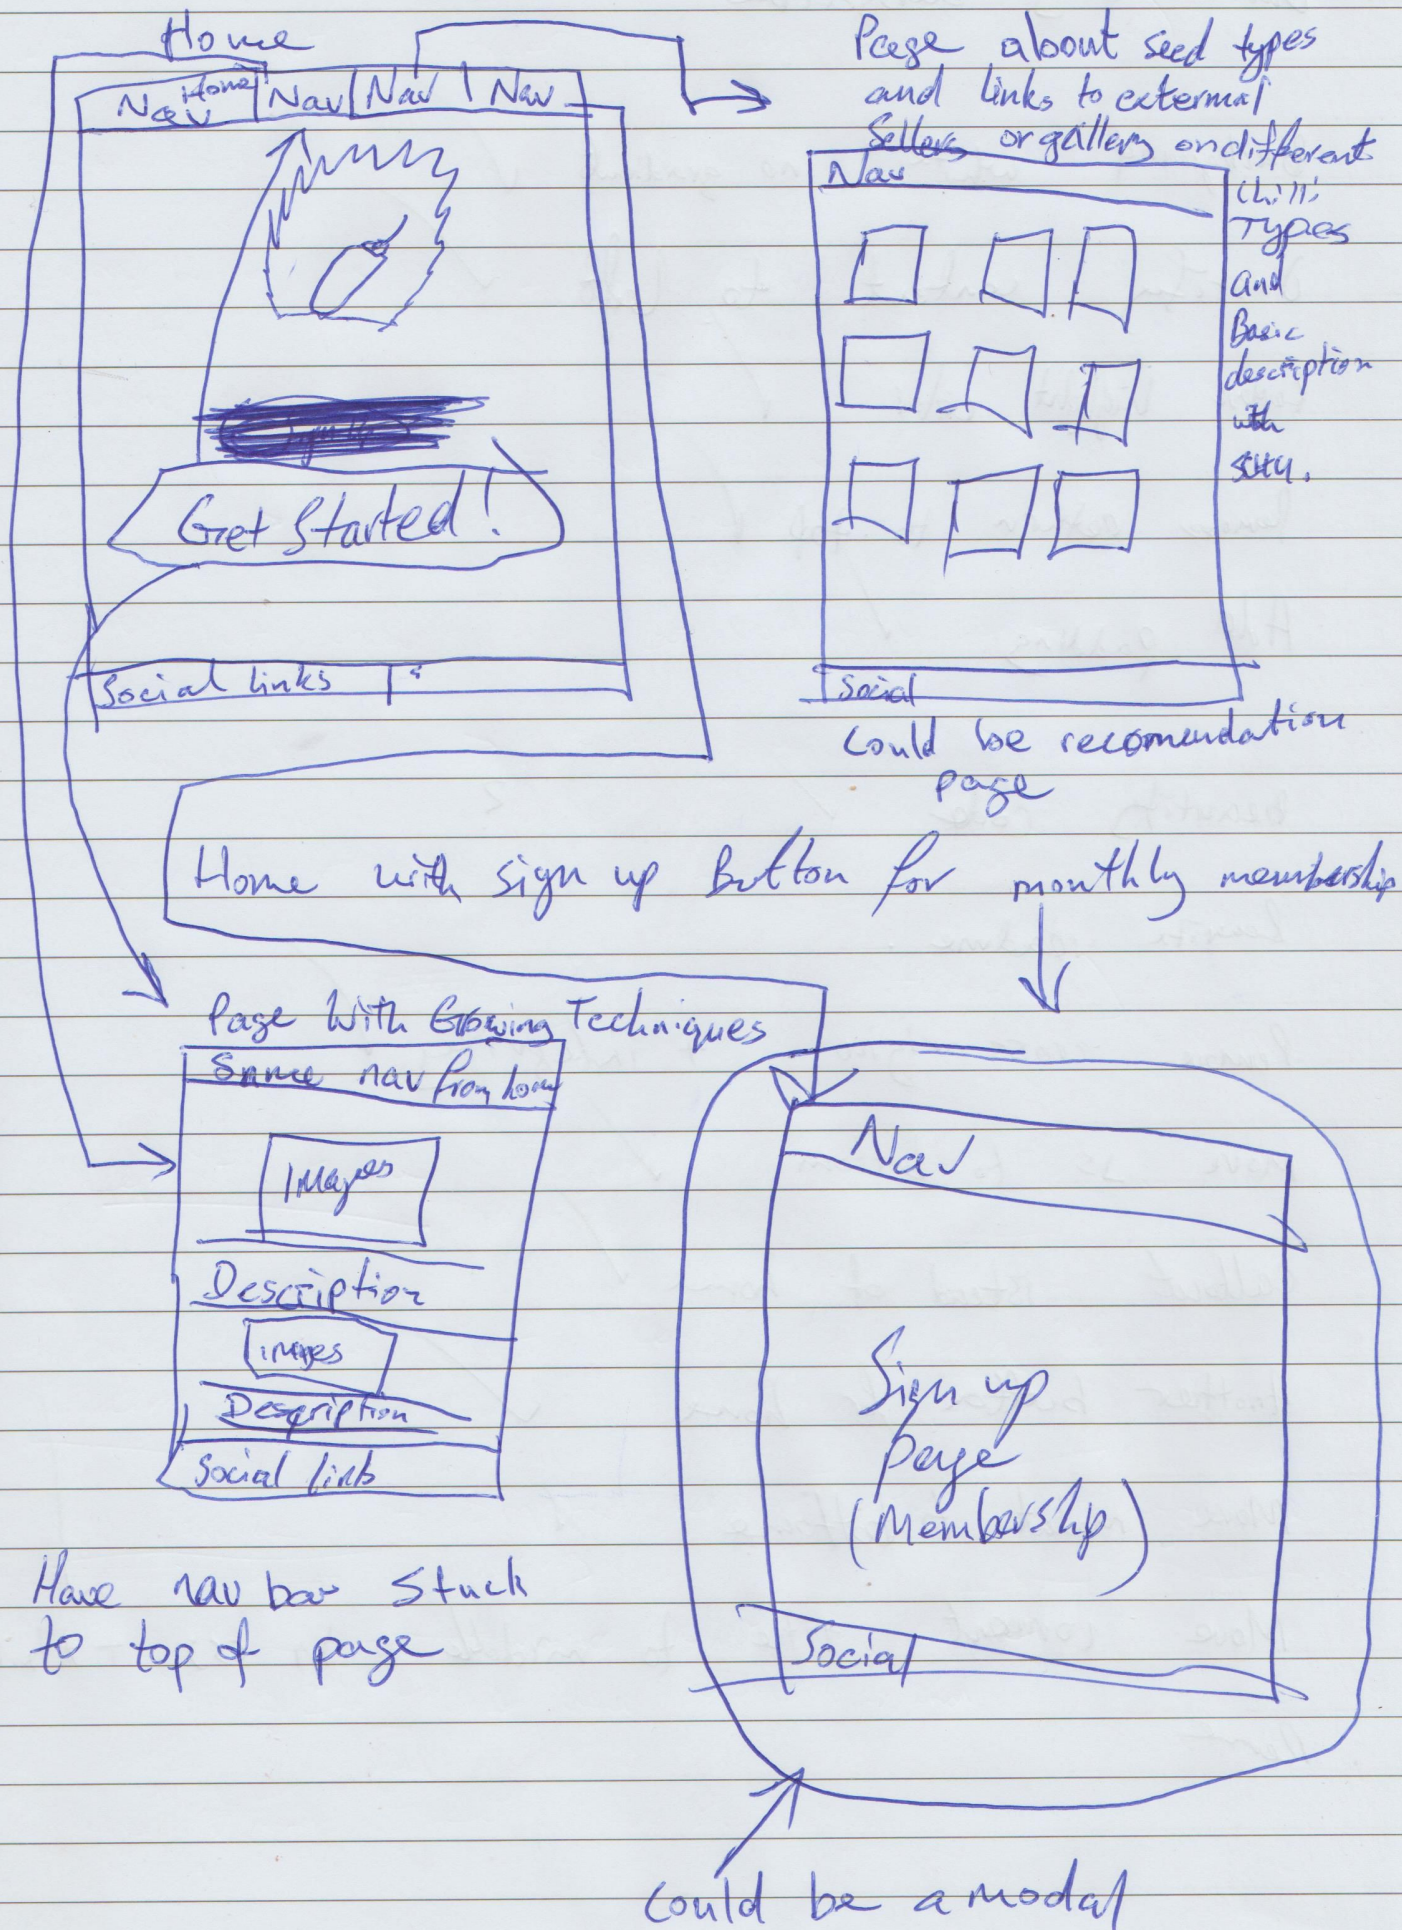 Home
Nav Home Nav Nav Nav
Get Started!
Social links
Page about seed types
and links to external
Sellers or gallery on different
chilli
Types
and
Basic
description
with
SHU.
Nav
Social
Could be recomendation
page
Home with sign up Button for monthly membership
Page With Growing Techniques
Same nav from home
Images
Description
images
Description
Social links
Have nav bar stuck
to top of page
Nav
Sign up
page
(Membership)
Social
Could be a modal